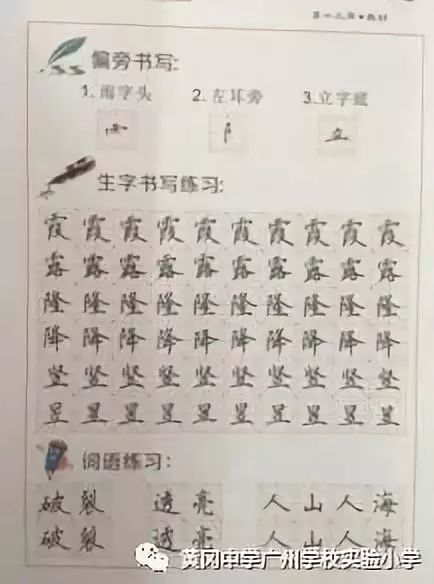 偏旁书写:
1.雨字头 2.左耳旁 3.立字底
⻗ 阝 立
生字书写练习:
霞 霞 霞 霞 霞 霞 霞 霞 霞 霞
露 露 露 露 露 露 露 露 露 露
隆 隆 隆 隆 隆 隆 隆 隆 隆 隆
降 降 降 降 降 降 降 降 降 降
竖 竖 竖 竖 竖 竖 竖 竖 竖 竖
昱 昱 昱 昱 昱 昱 昱 昱 昱 昱
词语练习:
破裂 透亮 人山人海
破裂 透亮 人山人海
黄冈中学广州学校实验小学